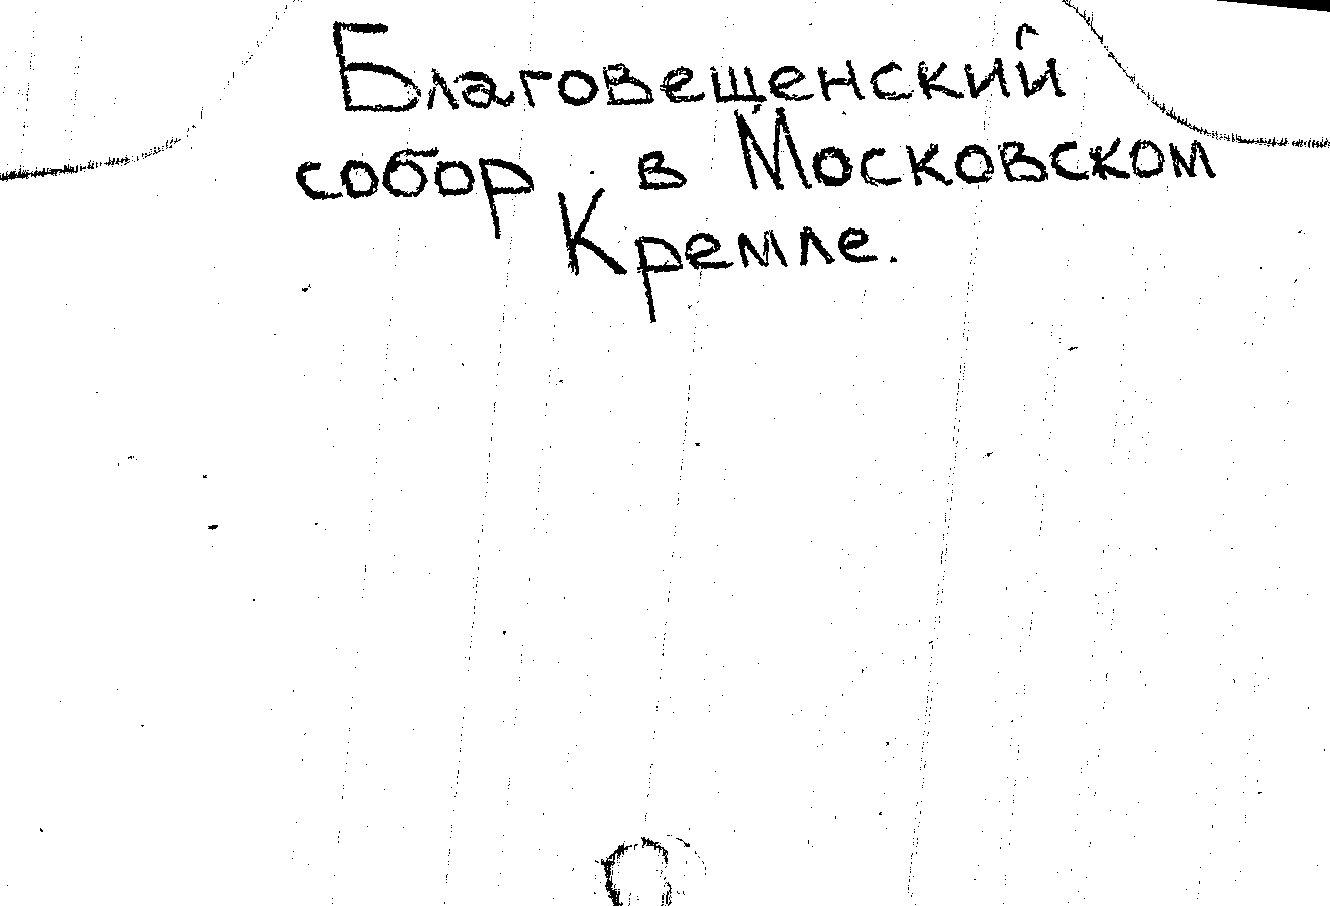 Благовещенский
собор в Московском
Кремле.